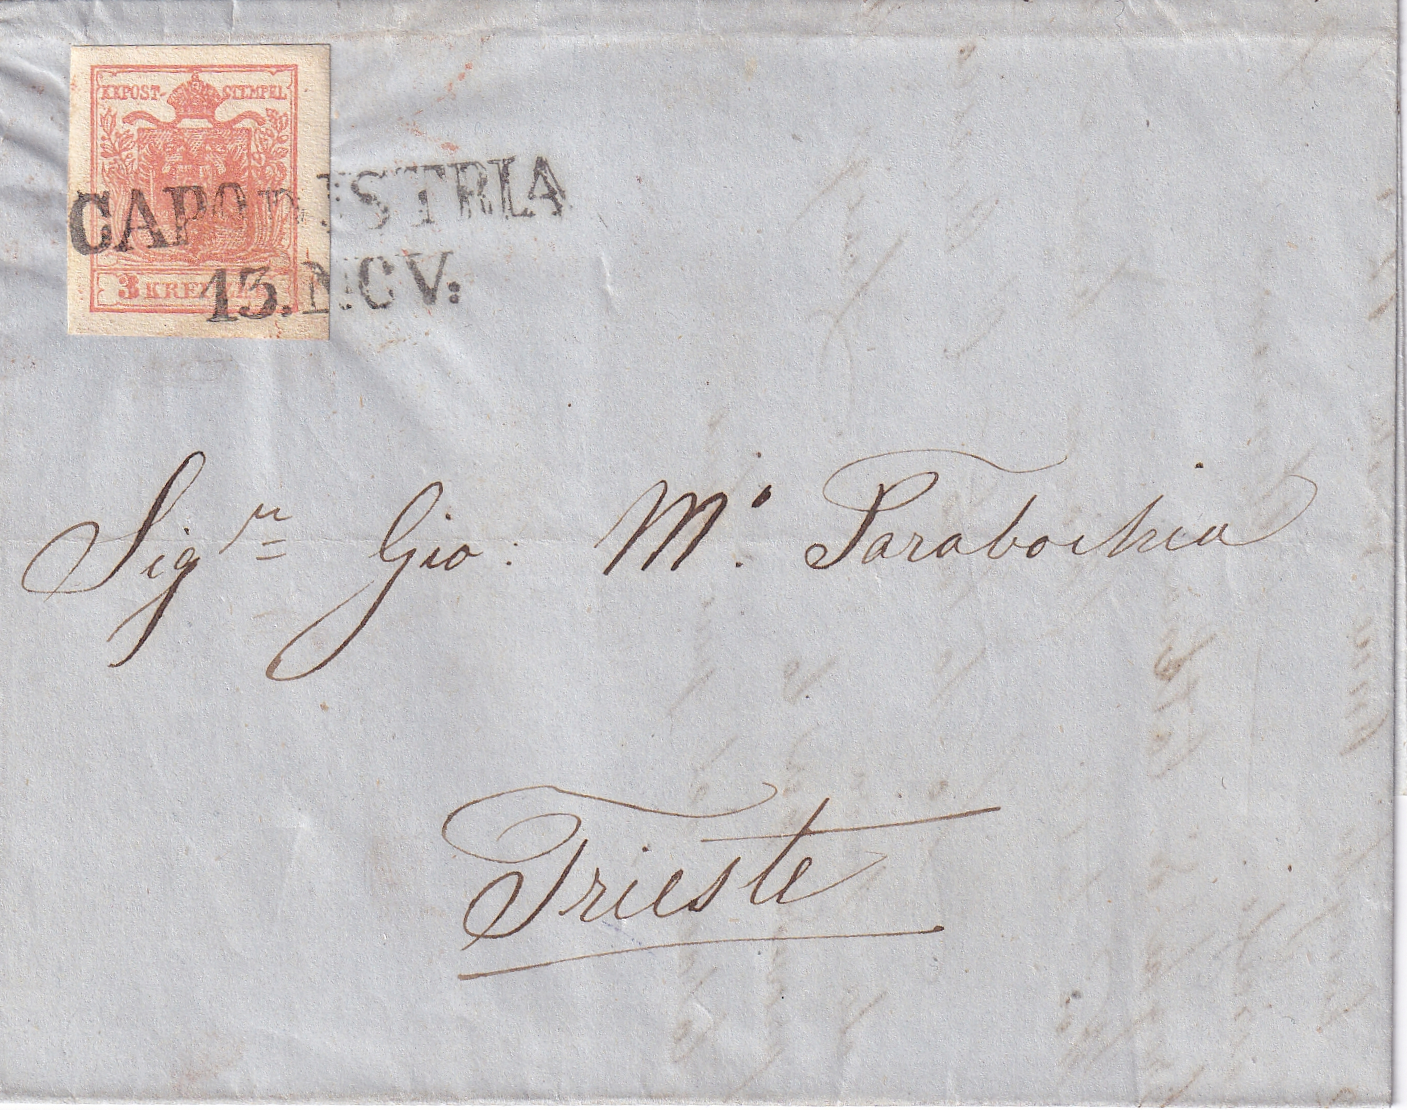 KKPOST-STEMPEL
3 KREUZER
CAPODISTRIA
13. NOV:
Sigr Gio: Mo. Parabochia
Trieste